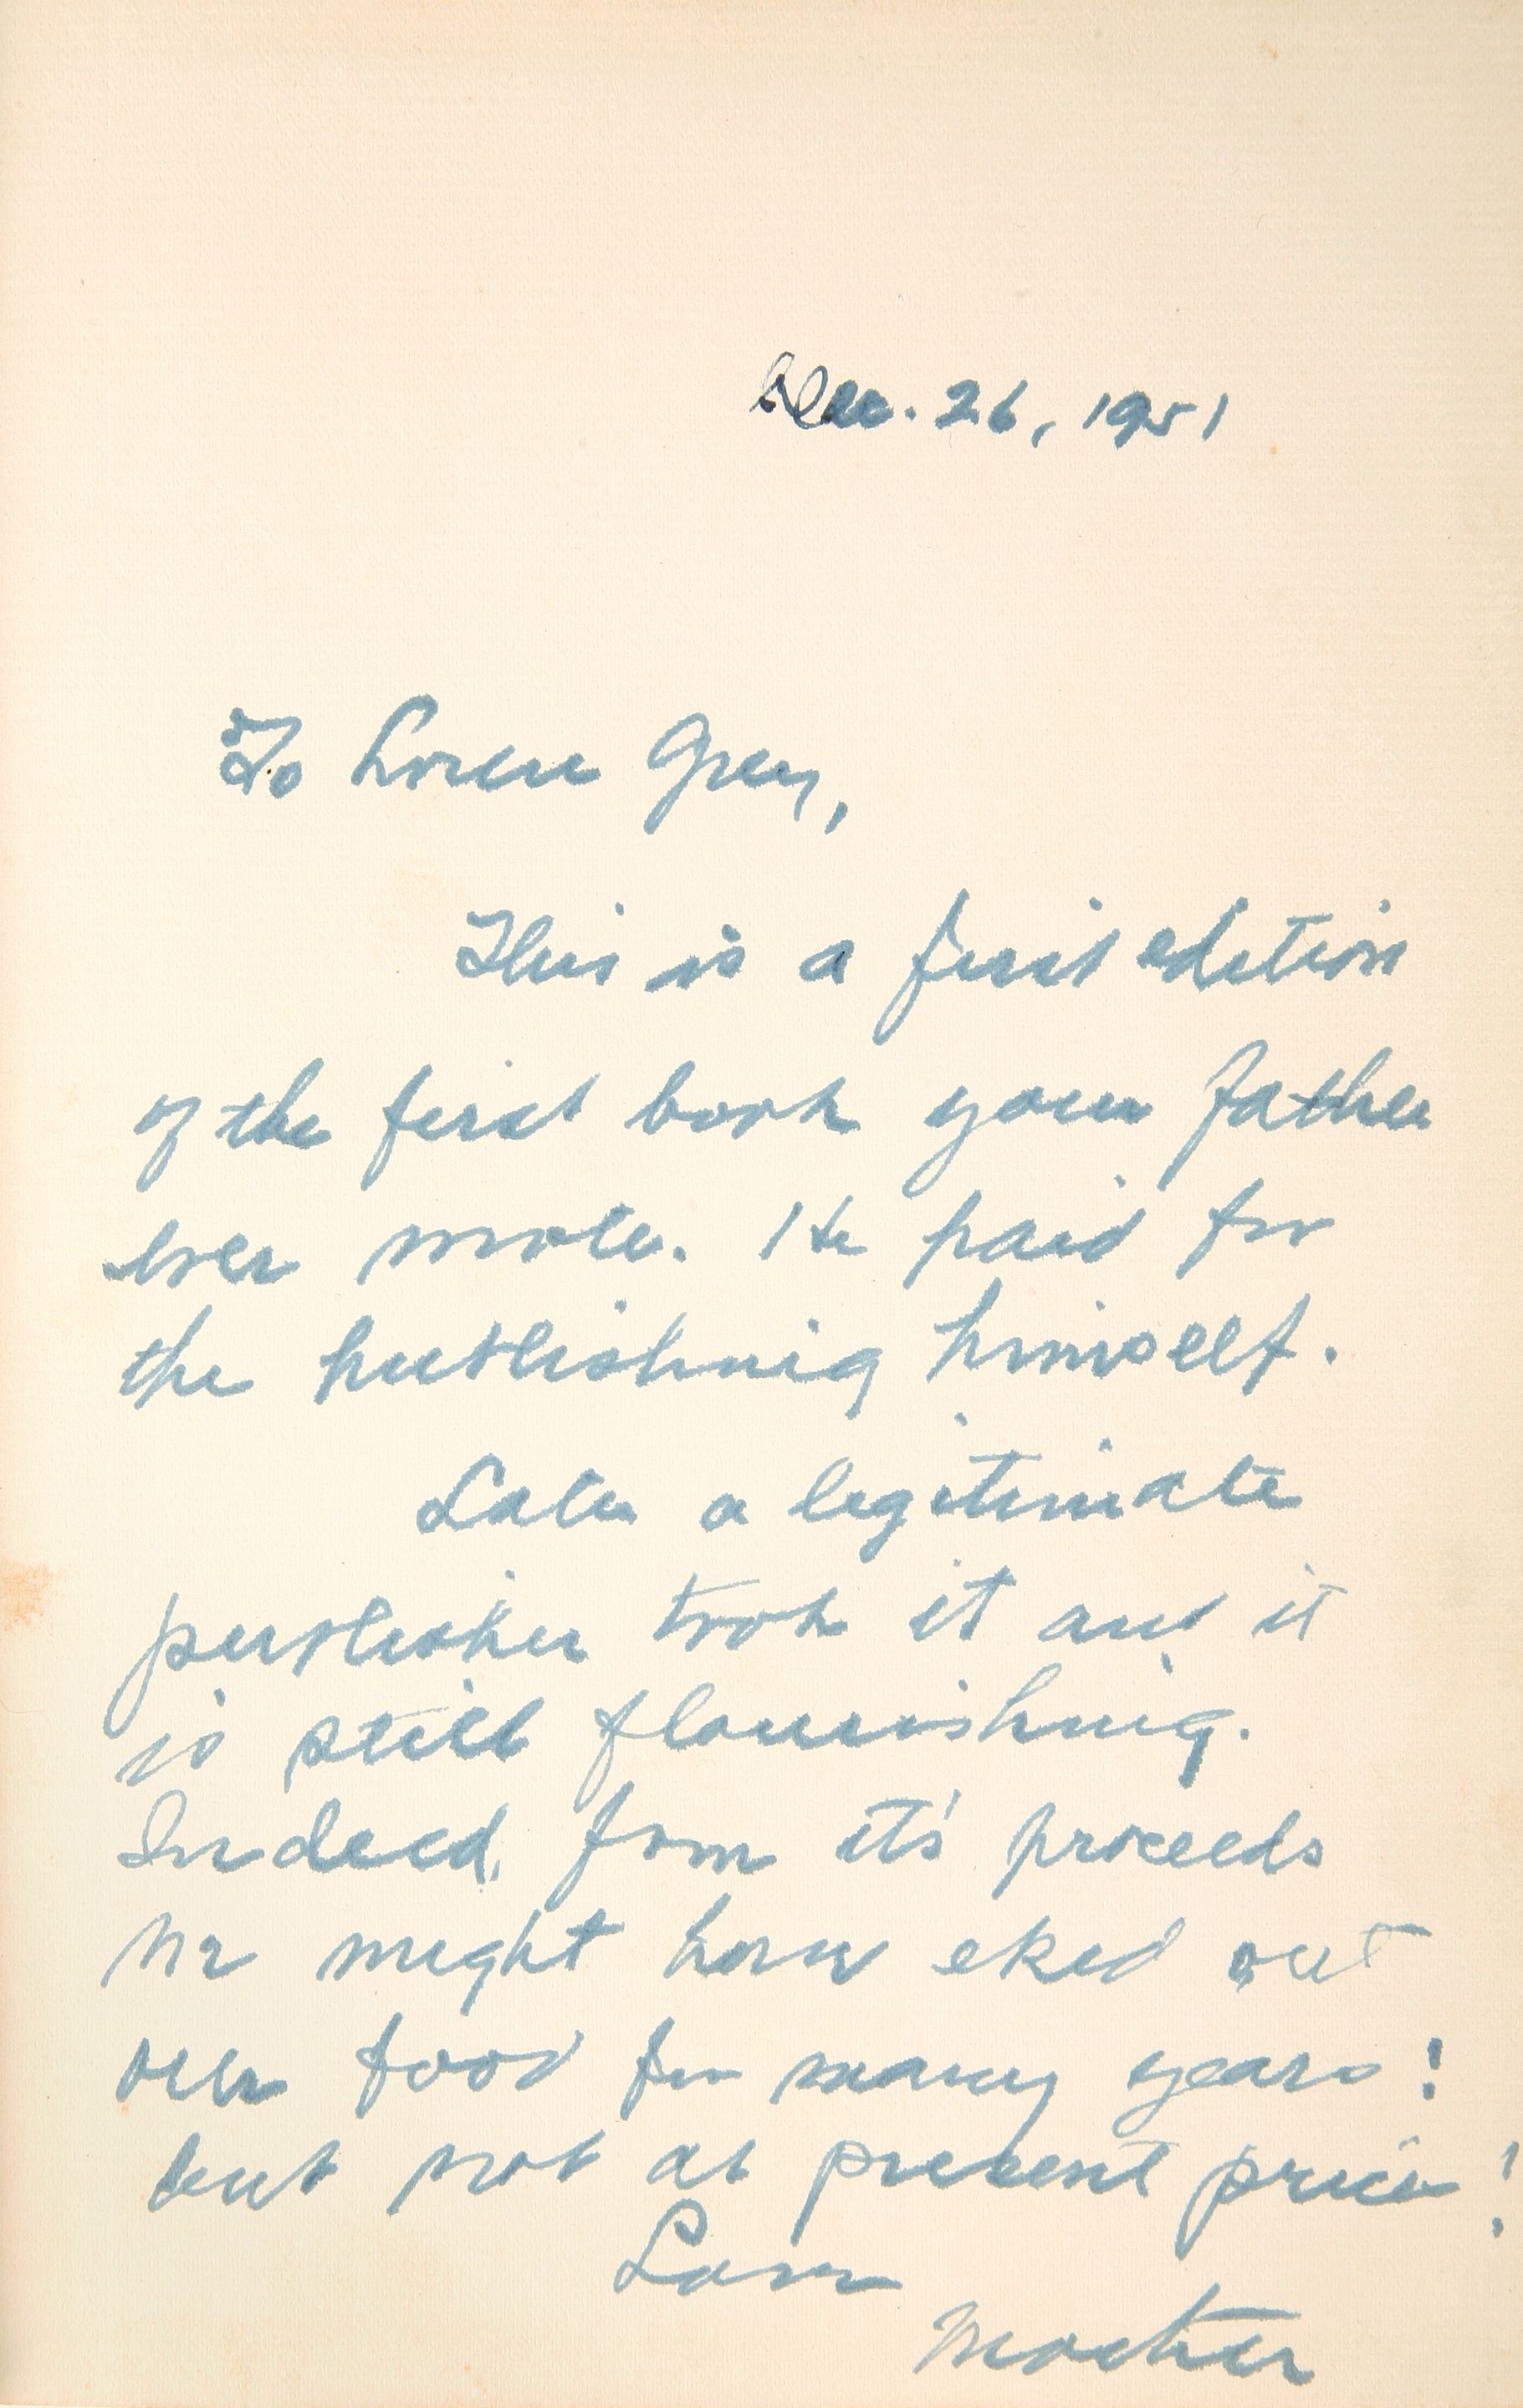 Dec. 26, 1951
To Loren Grey,
This is a first edition
of the first book your father
ever wrote. He paid for
the publishing himself.
Later a legitimate
publisher took it and it
is still flourishing.
Indeed, from it's proceeds
we might have eked out
our food for many years!
but not at present prices!
Love
Mother